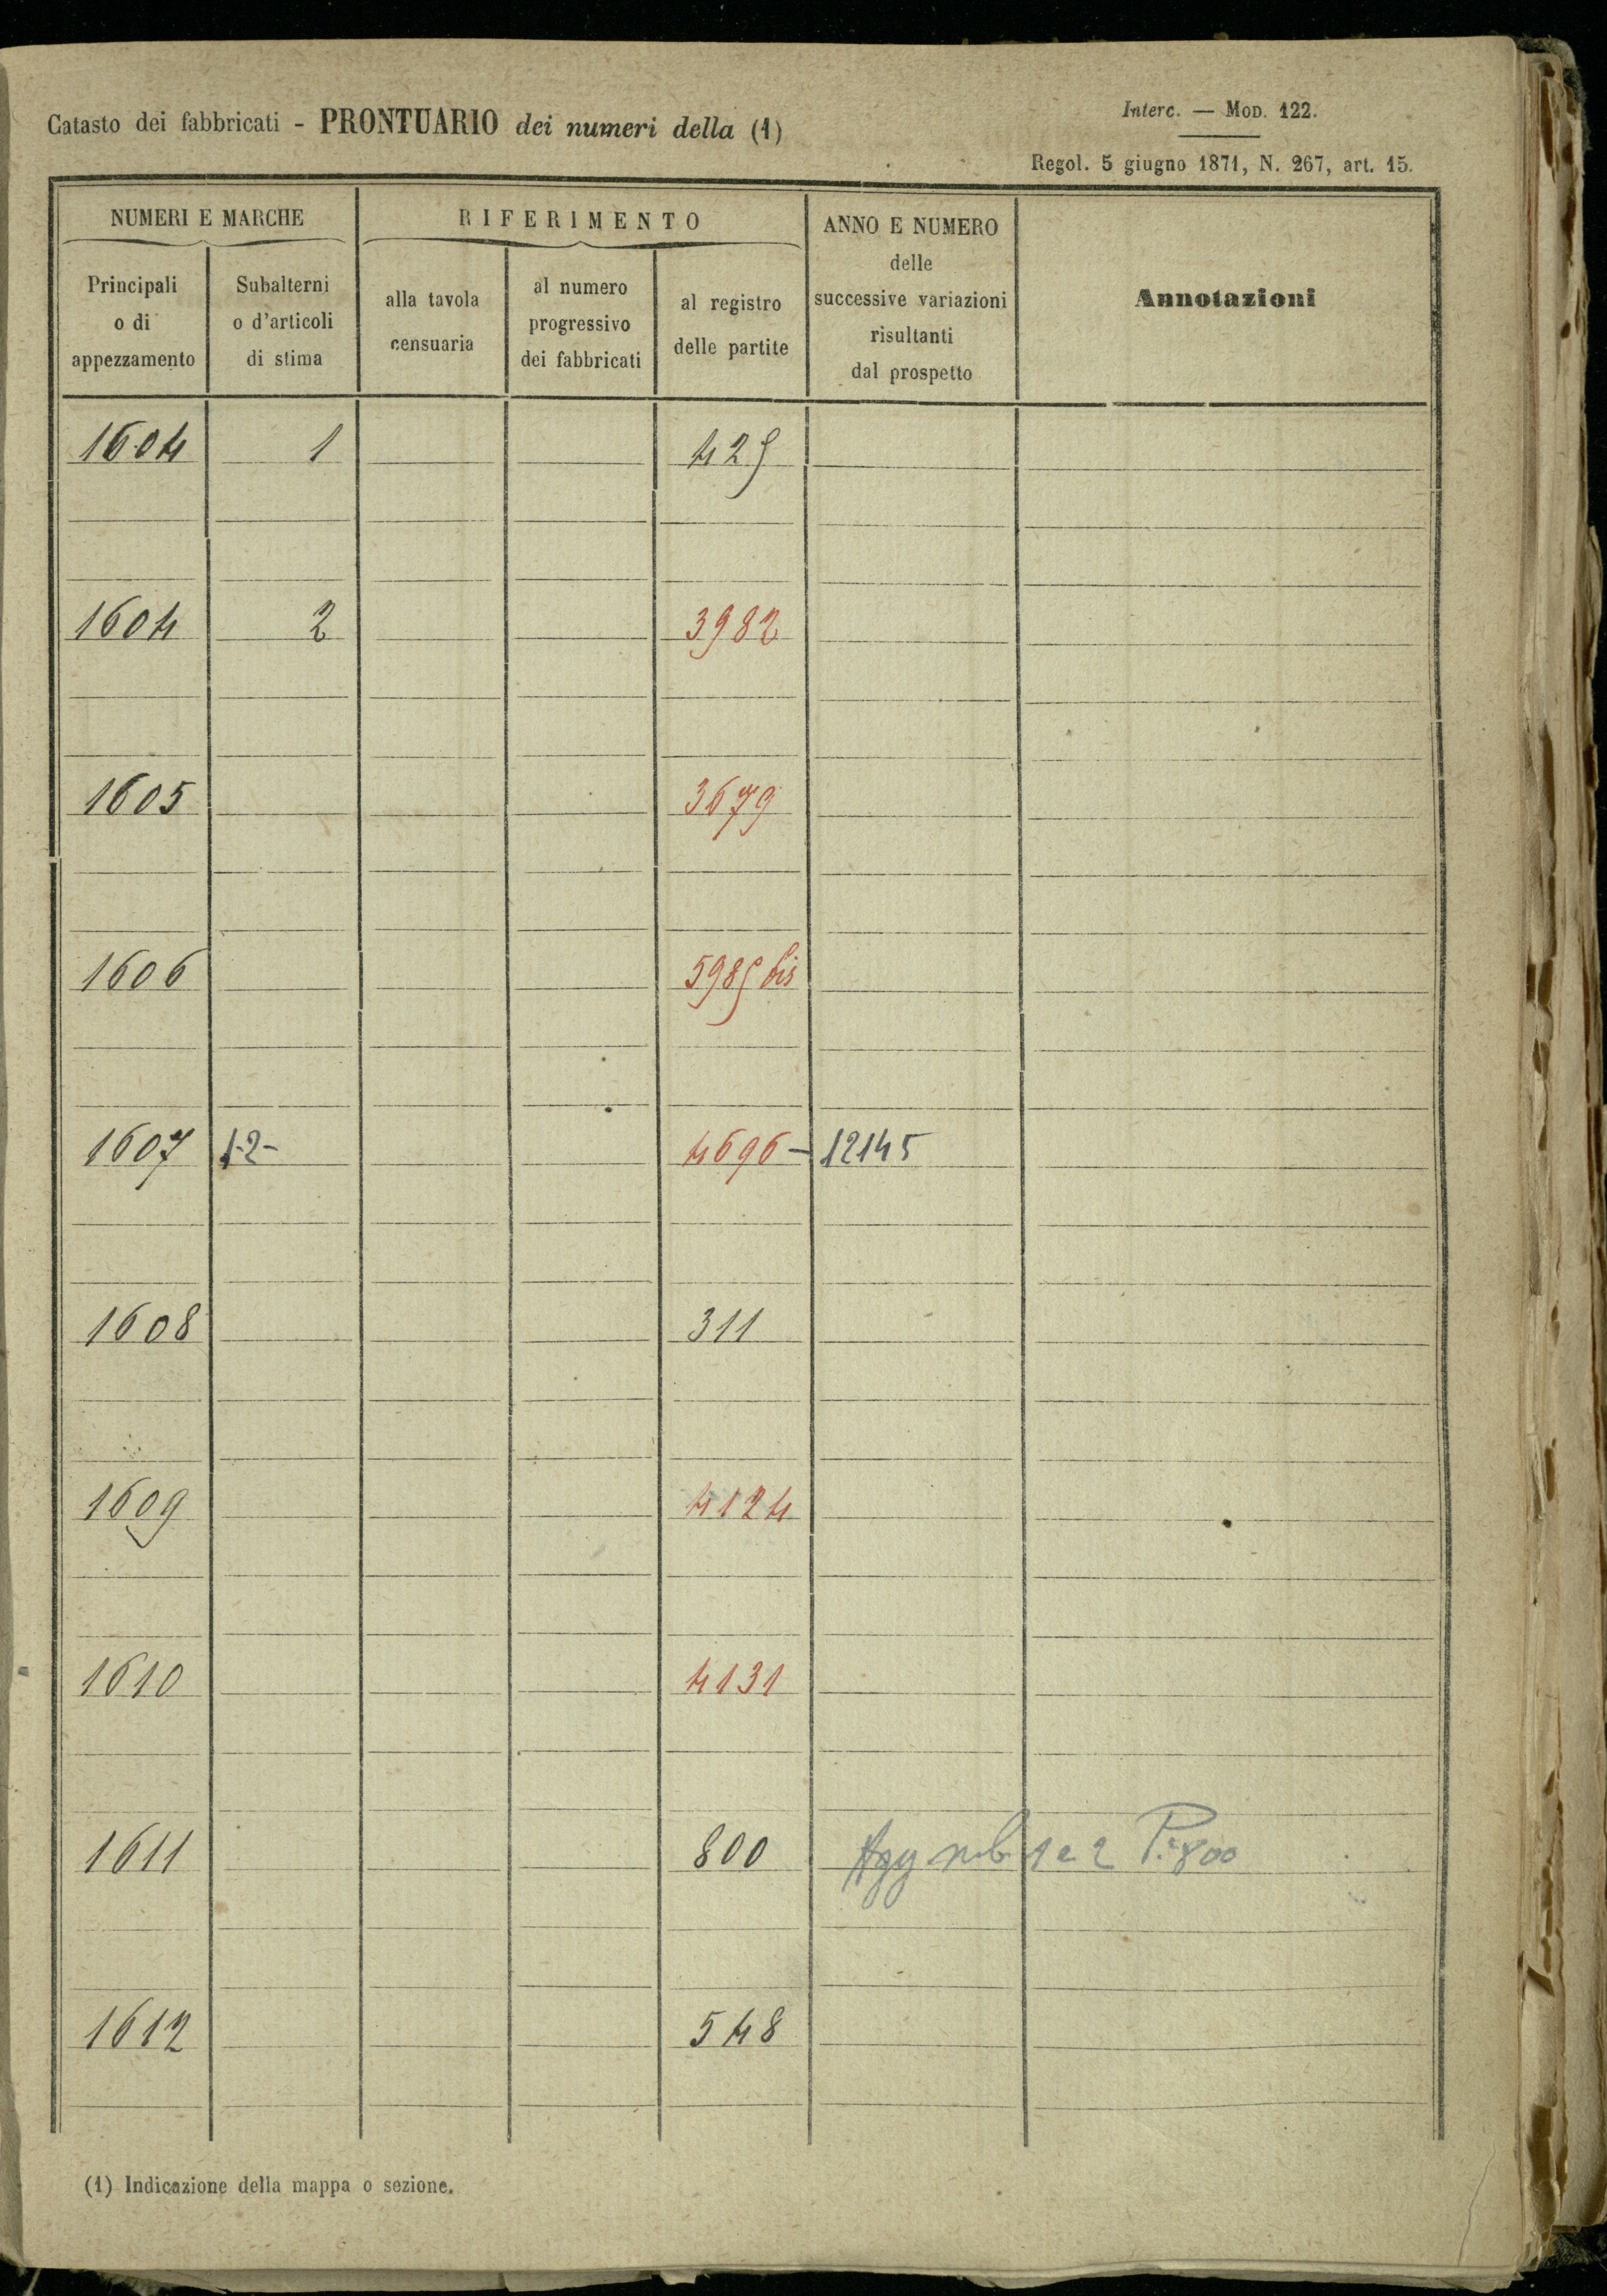 Catasto dei fabbricati - PRONTUARIO dei numeri della (1)
Interc. — Mod. 122.
Regol. 5 giugno 1871, N. 267, art. 15.
NUMERI E MARCHE
RIFERIMENTO
ANNO E NUMERO
delle
successive variazioni
risultanti
dal prospetto
Annotazioni
Principali
o di
appezzamento
Subalterni
o d'articoli
di stima
alla tavola
censuaria
al numero
progressivo
dei fabbricati
al registro
delle partite
1604 1 425
1604 2 3982
1605 3679
1606 5985 bis
1607 1-2- 4696 - 12145
1608 311
1609 4124
1610 4131
1611 800 Agg sub 1 e 2 P. 800
1612 548
(1) Indicazione della mappa o sezione.